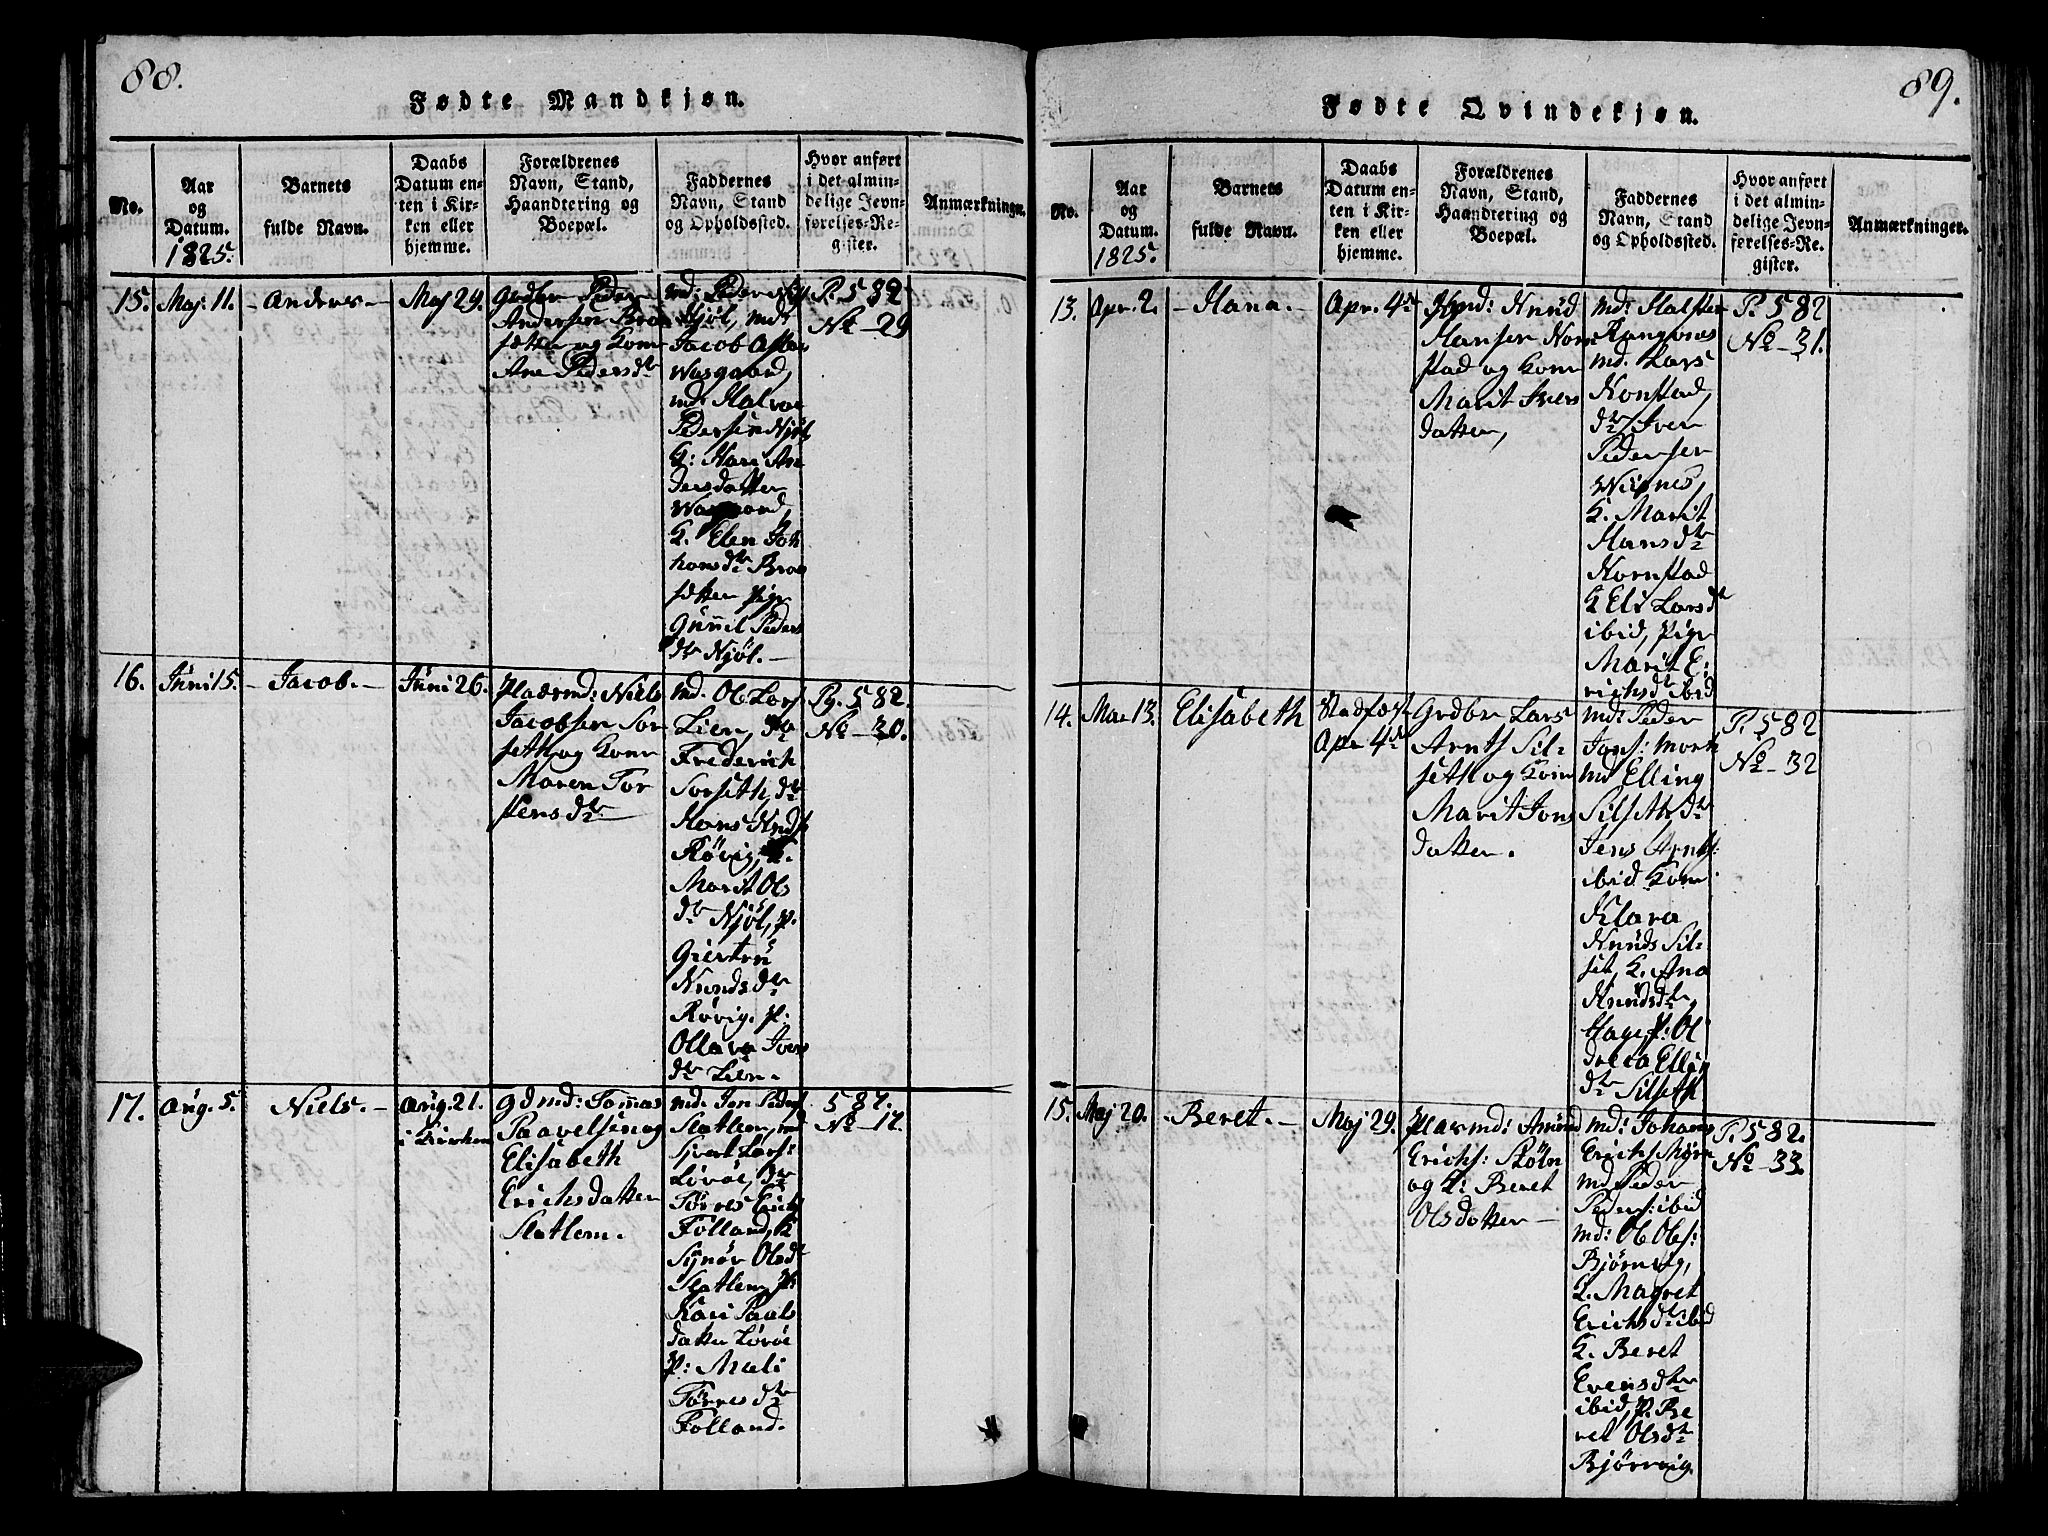 88.
Fødte Mandkjøn.
No.
Aar
og
Datum.
1825.
Barnets
fulde Navn.
Daabs
Datum en-
ten i Kir-
ken eller
hjemme.
Forældrenes
Navn, Stand,
Haandtering og
Boepæl.
Faddernes
Navn, Stand
og Opholdssted.
Hvor anført
i det almin-
delige Jevn-
førelses-Re-
gister.
Anmærkninger.
15.
Maj. 11.
Anders
Maj 29.
Grdbr Peder
Andersen Bra
sætter og Kone
Ane Pedersdtr
md: Peder
Njøl, md:
Jacob
Wasgaard,
md: Halvor
Pedersen Njøl
K: Mari An
dersdatter
Wasgaard,
K. Elen Joh
hansdtr Bra
sætter Pige
Gunnil Peders
dtr Njøl.
P. 582
No 29
16.
Juni 15.
Jacob.
Juni 26.
Pladsmd: Niels
Jacobsen Sor
seth og Kone
Maren Tor
stensdtr
md. Ole Lars
Lien, do
Frederich
Sorseth, do
Hans Knuds
Røvig, K.
Marit Ols
dtr Njøl, P.
Giertru
Knudsdtr
Røvig. P:
Ollava Ivers
dtr Lien.
Pg. 582.
No 30.
17.
Aug. 5.
Niels.
Aug. 21.
i Kirken
gdmd: Tomas
Paavelsen og
Elisabeth
Erichsdatter
Slatlem.
md. Jon Peders
Slatlem, md
Sjvert Lars:
Lovøe, do
Tørres Erichs
Folland, K
Synøv Olsdtr
Slatlem, P:
Kari Paals
datter Lovøe
P: Mali
Tørresdtr
Folland.
582.
No 17.
89.
Fødte Qvindekjøn.
No.
Aar
og
Datum.
1825.
Barnets
fulde Navn.
Daabs
Datum en-
ten i Kir-
ken eller
hjemme.
Forældrenes
Navn, Stand,
Haandtering og
Boepæl.
Faddernes
Navn, Stand
og Opholdssted.
Hvor anført
i det almin-
delige Jevn-
førelses-Re-
gister.
Anmærkninger.
13.
Apr. 2.
Hana.
Apr. 4de
Hmd: Knud
Hansen Norn
stad og Kone
Marit Ivers
datter,
md: Halsten
Rangønes
md. Lars
Nornstad,
do Iver
Pedersen
K. Marit
Hansdtr
Nornstad
K Eli Larsdtr
ibid, Pige
Marit E:
richsdtr ibid
P. 582
No 31.
14.
Mar 13.
Elisabeth
Stadfæst
Apr 4de
Grdbr Lars
Arnts Sil:
seth og Kone
Marit Jons
datter.
md: Peder
Jons: Mork
md Elling
Silseth do
Jens Arnts:
ibid Kone
Klara
Knuds Sil:
set, K. Ana
Knudsdtr
Hage P: Ol
drea Elling
dtr Silseth
P. 582
No 32
15.
Maj 20.
Beret.
Maj 29.
Pladsmd: Amund
Erichs: Røln
og K: Beret
Olsdatter
md: Johans
Erichs Myre
md Peder
Peders: ibid
md: Ole Ols:
Bjørnvig,
K. Magret
Erichsdtr ibid
K. Beret
Evensdtr
ibid, P. Be
ret Olsdtr
Bjørnvig
P. 582.
No 33.